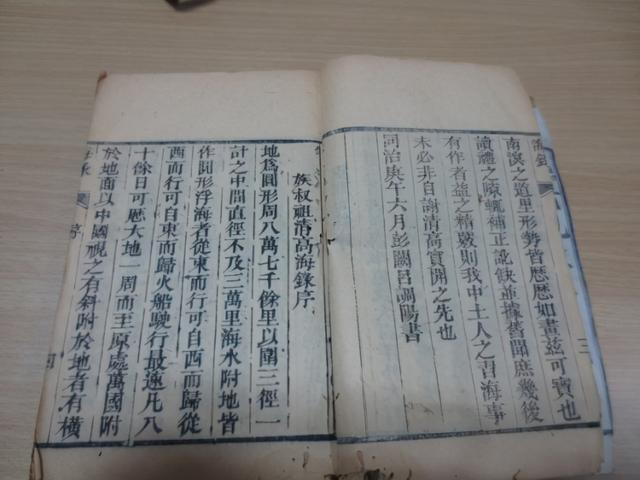 海錄
南溟之道里形勢皆歷歷如畫茲可寶也
讀禮之際輒補正訛缺並據舊聞庶幾後
有作者益之精覈則我中土人之言海事
未必非自謝清高實開之先也
同治庚午六月彭關呂調陽書
三
族叔祖清高海錄序
地爲圓形周八萬七千餘里以圍三徑一
計之中間直徑不及三萬里海水附地皆
作圓形浮海者從東而行可自西而歸從
西而行可自東而歸火船駛行最速凡八
十餘日可歷大地一周而至原處萬國附
於地面以中國視之有斜附於地者有橫
序
四